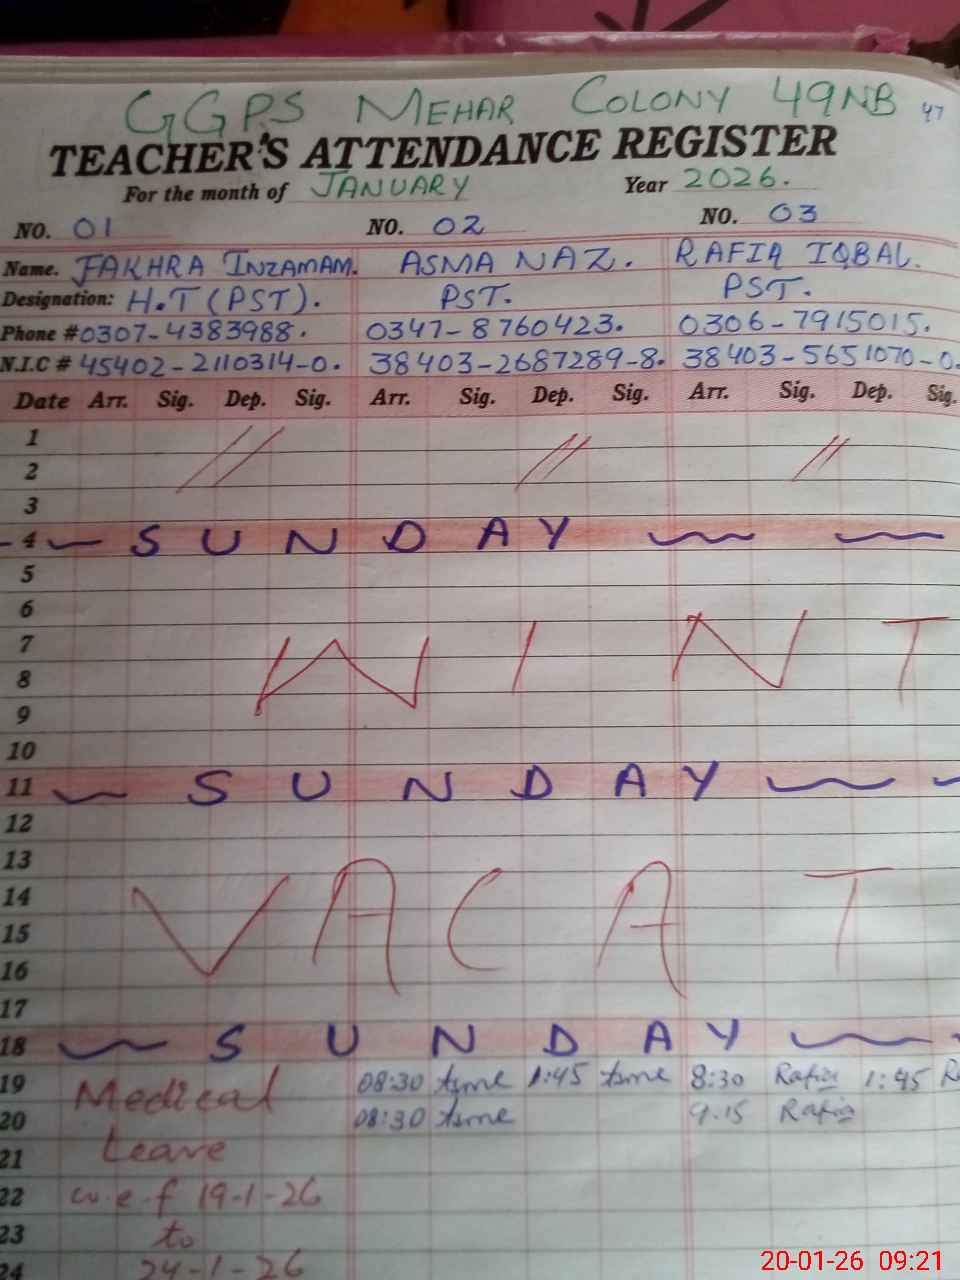 GGPS MEHAR COLONY 49NB 47
TEACHER'S ATTENDANCE REGISTER
For the month of JANUARY Year 2026.
NO. 01 NO. 02 NO. 03
Name. FAKHRA INZAMAM. ASMA NAZ. RAFIA IQBAL.
Designation: H.T (PST). PST. PST.
Phone # 0307-4383988. 0347-8760423. 0306-7915015.
N.I.C # 45402-2110314-0. 38403-2687289-8. 38403-5651070-0.
Date Arr. Sig. Dep. Sig. Arr. Sig. Dep. Sig. Arr. Sig. Dep. Sig.
1
2
3
4 SUNDAY
5
6
7 WINT
8
9
10
11 SUNDAY
12
13
14 VACAT
15
16
17
18 SUNDAY
19 Medical 08:30 1:45 8:30 Rafia 1:45
20 08:30 9.15 Rafia
21 Leave
22 w.e.f 19-1-26
23 to
24 24-1-26
20-01-26 09:21